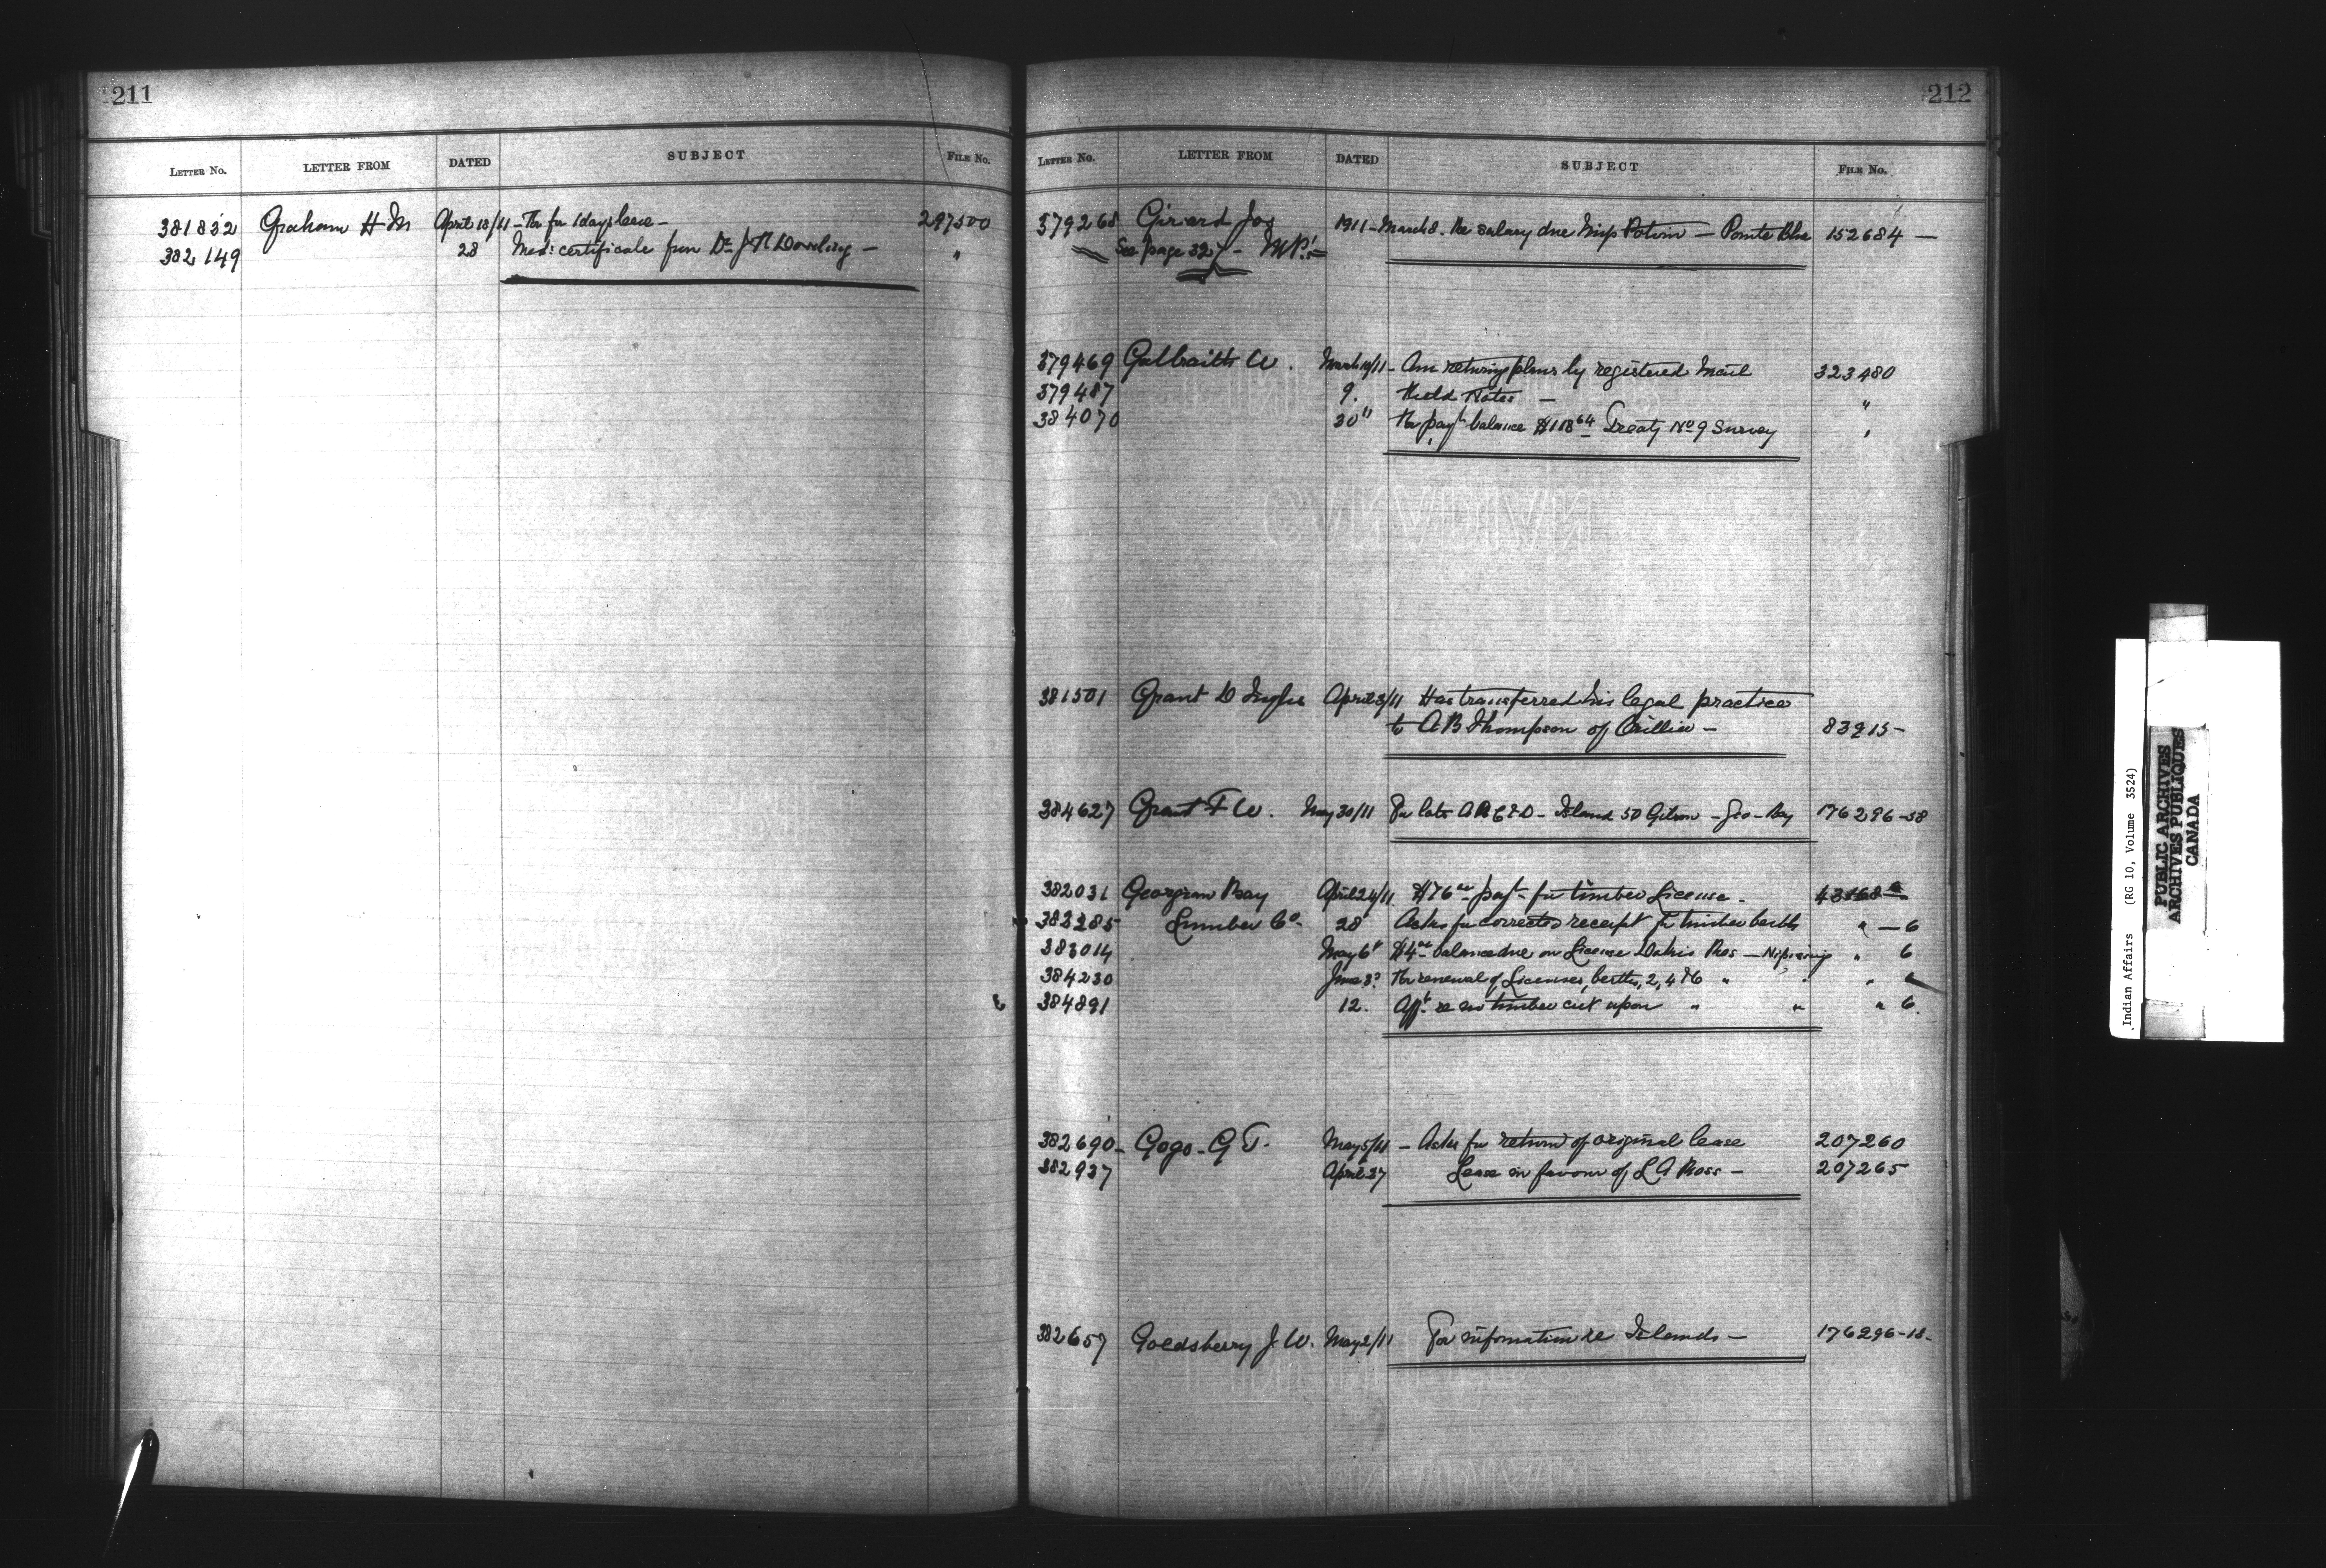 211
LETTER NO. LETTER FROM DATED SUBJECT FILE No.
381832 Graham H M April 18/11 - for 1 days leave - 297500
382149 28 Med: certificate from Dr J R Dowling - "
212
LETTER NO. LETTER FROM DATED SUBJECT FILE No.
379268 Girard Jos 1911 - March 8. Re salary due Miss Potvin - Pointe Blue 152684 -
See page 327 - MP.
379469 Galbraith W. March 10/11 - Am returning plans by registered mail 323480
379487 9. Field Notes - "
384070 30" For payt balance $118 64 Treaty No 9 Survey "
381501 Grant D Inglis April 3/11 Has transferred his legal practice
to A B Thompson of Orillia - 83215 -
384627 Grant F W. May 30/11 For lots A B C & D - Island 50 Gibson - Geo - Bay 176296-58
382031 Georgian Bay April 24/11 $76 payt for timber License -
382285 Lumber Co. 28 Asks for corrected receipt for timber berth " - 6
383014 May 6 $4 balance due on License Dokis Res - Nipissing " 6
384230 June 3 For renewal of Licenses, berths, 2, 4 & 6 " " "
384891 12. Afft re no timber cut upon " " " 6.
382690 - Gogo - G T. May 5/11 - Asks for return of original lease 207260
382937 April 27 Lease in favour of L A Ross - 207265
382657 Goldsberry J. W. May 2/11 For information re Islands - 176296-18-
Indian Affairs (RG 10, Volume 3524)
PUBLIC ARCHIVES
ARCHIVES PUBLIQUES
CANADA